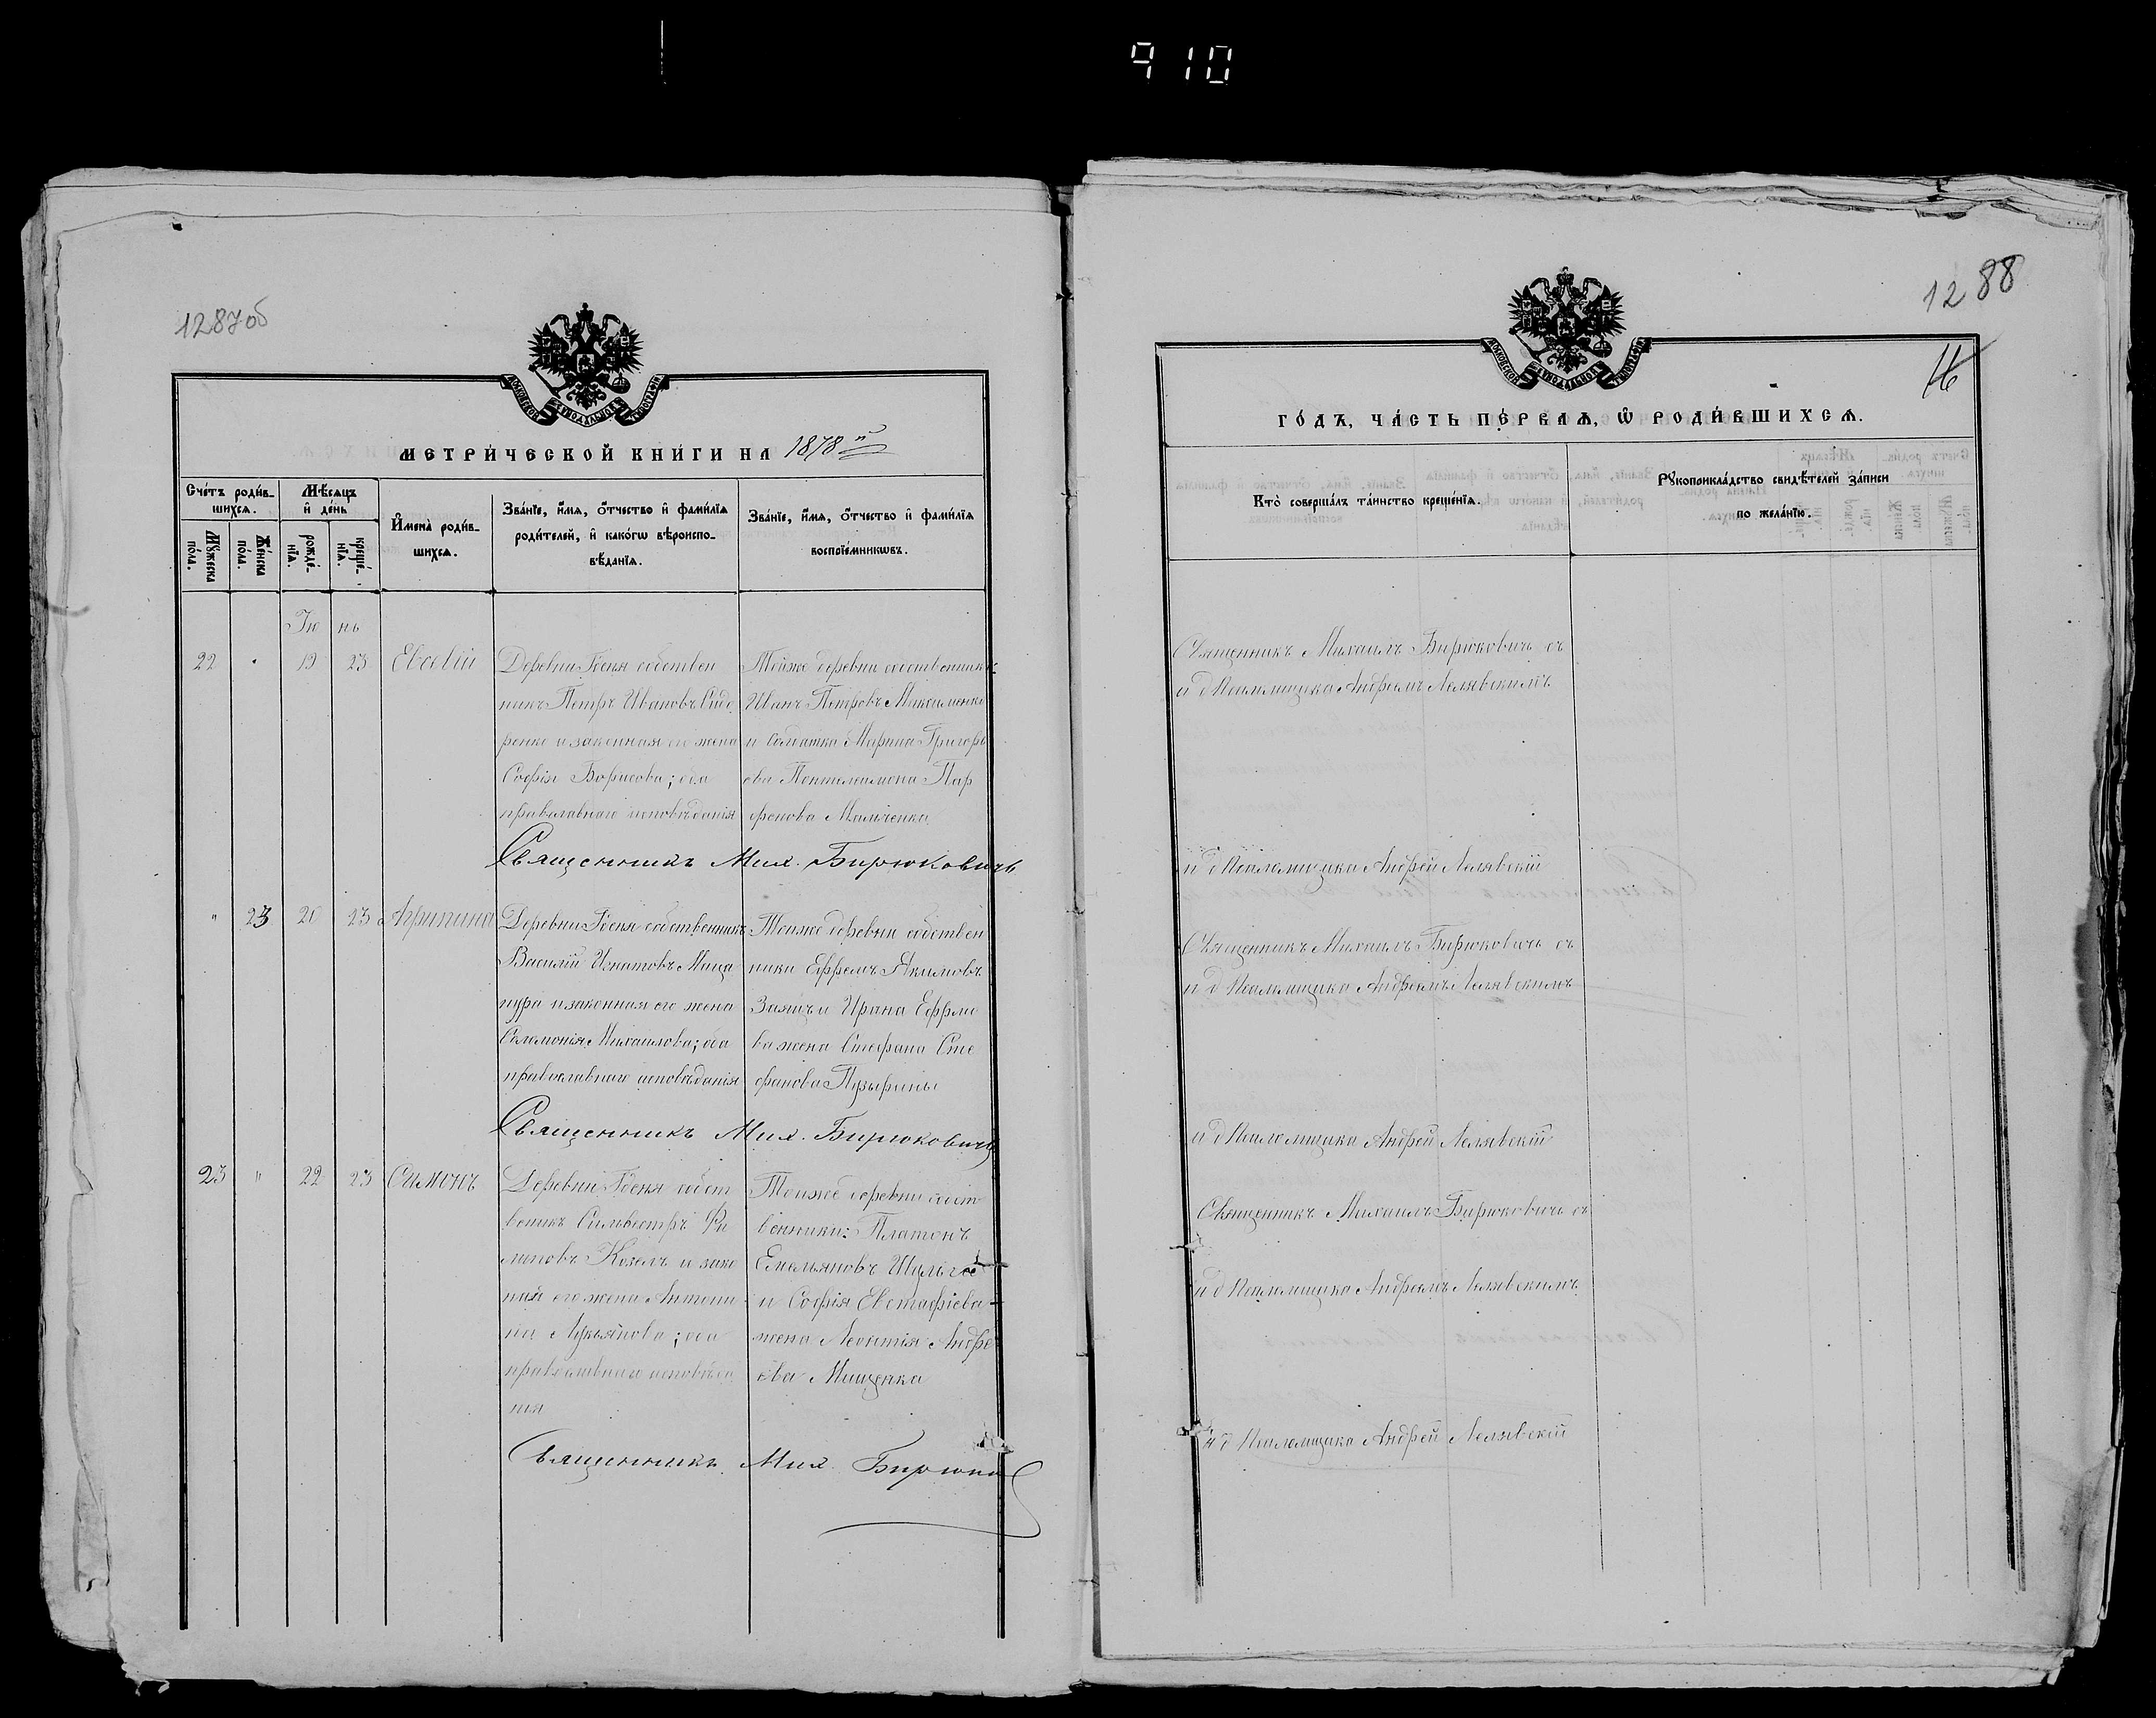 910
1287об
МОСКОВСКОЙ СѴНОДАЛЬНОЙ ТИПОГРАФІИ
МЕТРИ́ЧЕСКОЙ КНИ́ГИ НА 1878й
Сче́тъ роди́в-
шихсѧ.
Мѣ́сѧцъ
и҆ де́нь
Мꙋ́жеска
по́ла.
Же́нска
по́ла.
рожде́-
нїѧ.
креще́-
нїѧ.
И҆мена̀ роди́в-
шихсѧ.
Зва́нїе, и҆́мѧ, ѻ҆́тчество и҆ фами́лїѧ
роди́телей, и҆ како́гѡ вѣроиспо-
вѣ́данїѧ.
Зва́нїе, и҆́мѧ, ѻ҆́тчество и҆ фами́лїѧ
воспрїе́мникѡвъ.
Іюнь
22 " 19 23 Евсевій
Деревни Гденя собствен
никъ Петръ Ивановъ Сидо
ренко и законная его жена
Софія Борисова; оба
православнаго исповѣданія
Тойже деревни собственникъ
Иванъ Петровъ Максименко
и солдатка Марина Григорь
ева Пантелеимона Пар
фенова Мальченка
Священникъ Мих. Бирюковичъ
" 23 20 23 Агрипина
Деревни Гденя собственникъ
Василій Игнатовъ Маца
пура и законная его жена
Соломонія Михаилова; оба
православнаго исповѣданія
Тойже деревни собствен
ники Ефремъ Якимовъ
Заяцъ и Ирина Ефремо
ва жена Стефана Сте
фанова Пузырины
Священникъ Мих. Бирюковичъ
23 " 22 23 Симонъ
Деревни Гденя собст
веникъ Сильвестръ Фи
липовъ Козелъ и зако
ная его жена Антони
на Лукьянова; оба
православнаго исповѣда
нія
Тойже деревни собст
венники: Платонъ
Емельяновъ Шульга
и Софія Евстафіева
жена Леонтія Андре
ева Мищенка
Священникъ Мих. Бирюко
1288
16
МОСКОВСКОЙ СѴНОДАЛЬНОЙ ТИПОГРАФІИ
ГО́ДЪ, ЧА́СТЬ ПЕ́РВАѦ, Ѡ҆ РОДИ́ВШИХСѦ.
Кто̀ соверша́лъ та́инство креще́нїѧ.
Рꙋкоприкла́дство свидѣ́телей за́писи
по жела́нїю.
Священникъ Михаилъ Бирюковичъ съ
и д Псаломщика Андреемъ Лелявскимъ
и д Псаломщика Андрей Лелявскій
Священникъ Михаилъ Бирюковичъ съ
и д Псаломщика Андреемъ Лелявскимъ
и д Псаломщика Андрей Лелявскій
Священникъ Михаилъ Бирюковичъ съ
и д Псаломщика Андреемъ Лелявскимъ
и д Псаломщика Андрей Лелявскій